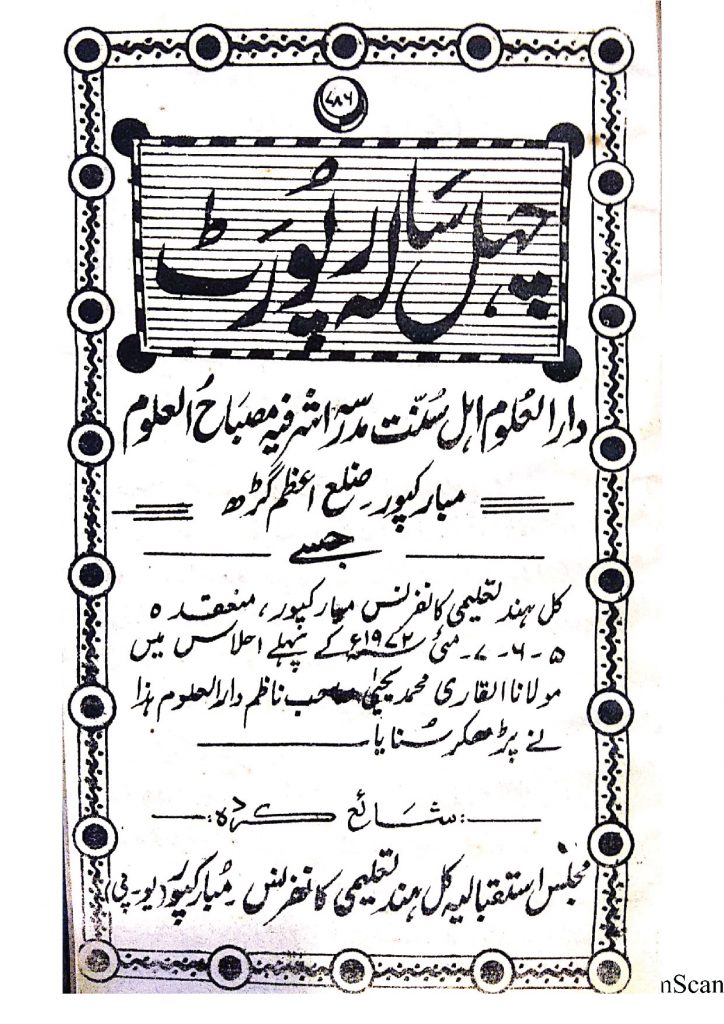 ۷۸۶
چہل سالہ رپورٹ
دارالعلوم اہل سنّت مدرسہ اشرفیہ مصباح العلوم
مبارکپور ضلع اعظم گڑھ
جسے
کل ہند تعلیمی کانفرنس مبارکپور، منعقدہ
۵-۶-۷-مئی ۱۹۷۲ء کے پہلے اجلاس میں
مولانا القاری محمد یحییٰ صاحب ناظم دارالعلوم ہذا
نے پڑھکر سُنایا
شائع کردہ:
مجلس استقبالیہ کل ہند تعلیمی کانفرنس مُبارکپور (یو-پی)
nScan